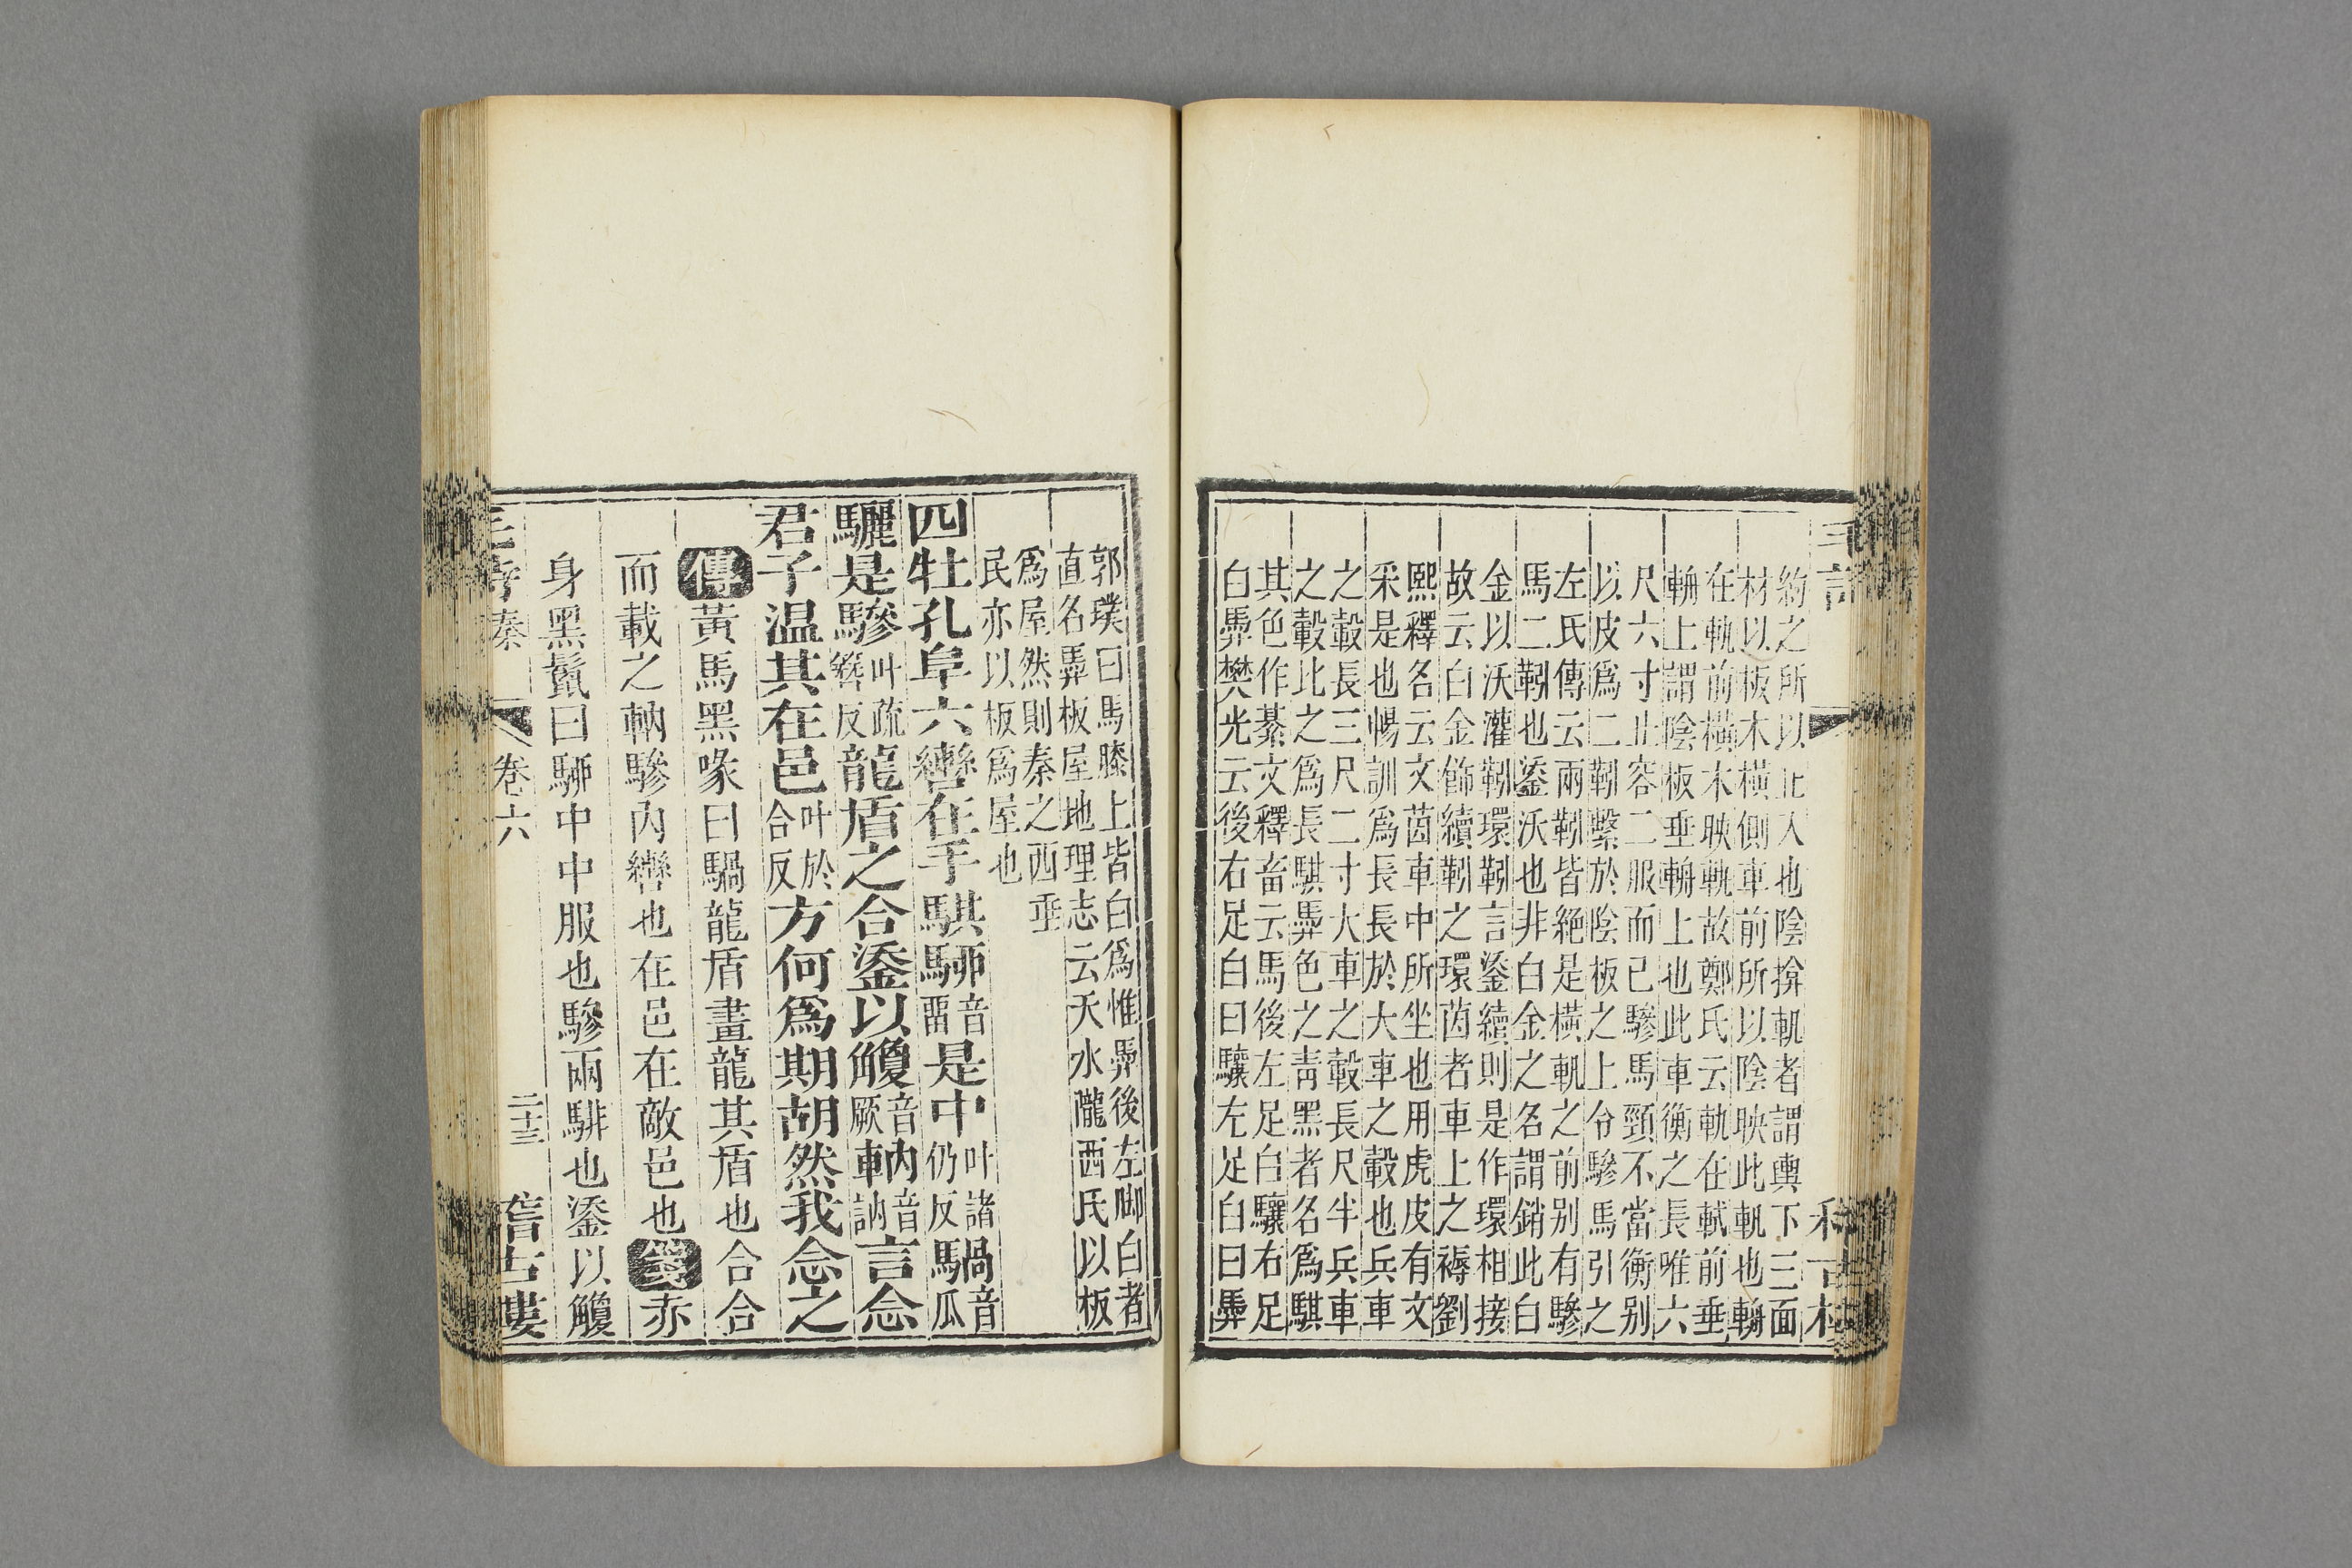 毛詩
約之所以止入也陰揜軌者謂輿下三面
材以板木橫側車前所以陰映此軌也輈
在軌前橫木映軌故鄭氏云軌在軾前垂
輈上謂陰板垂輈上也此車衡之長唯六
尺六寸止容二服而已驂馬頸不當衡别
以皮爲二靷繫於陰板之上令驂馬引之
左氏傳云兩靷皆絕是橫軌之前别有驂
馬二靷也鋈沃也非白金之名謂銷此白
金以沃灌靷環靷言鋈續則是作環相接
故云白金飾續靷之環茵者車上之褥劉
熙釋名云文茵車中所坐也用虎皮有文
采是也暢訓爲長長於大車之轂也兵車
之轂長三尺二寸大車之轂長尺半兵車
之轂比之爲長騏馵色之靑黑者名爲騏
其色作綦文釋畜云馬後左足白驤右足
白馵樊光云後右足白曰驤左足白曰馵
郭璞曰馬膝上皆白爲惟馵後左脚白者
直名馵板屋地理志云天水隴西氏以板
爲屋然則秦之西垂
民亦以板爲屋也
四牡孔阜六轡在手騏駵音畱是中叶諸仍反騧音瓜
驪是驂叶疏簪反龍盾之合鋈以觼音厥軜音訥言念
君子温其在邑叶於合反方何爲期胡然我念之
傳黃馬黑喙曰騧龍盾畫龍其盾也合合
而載之軜驂內轡也在邑在敵邑也箋赤
身黑鬣曰駵中中服也驂兩騑也鋈以觼
毛詩秦 卷六 二十三 𥡴古樓